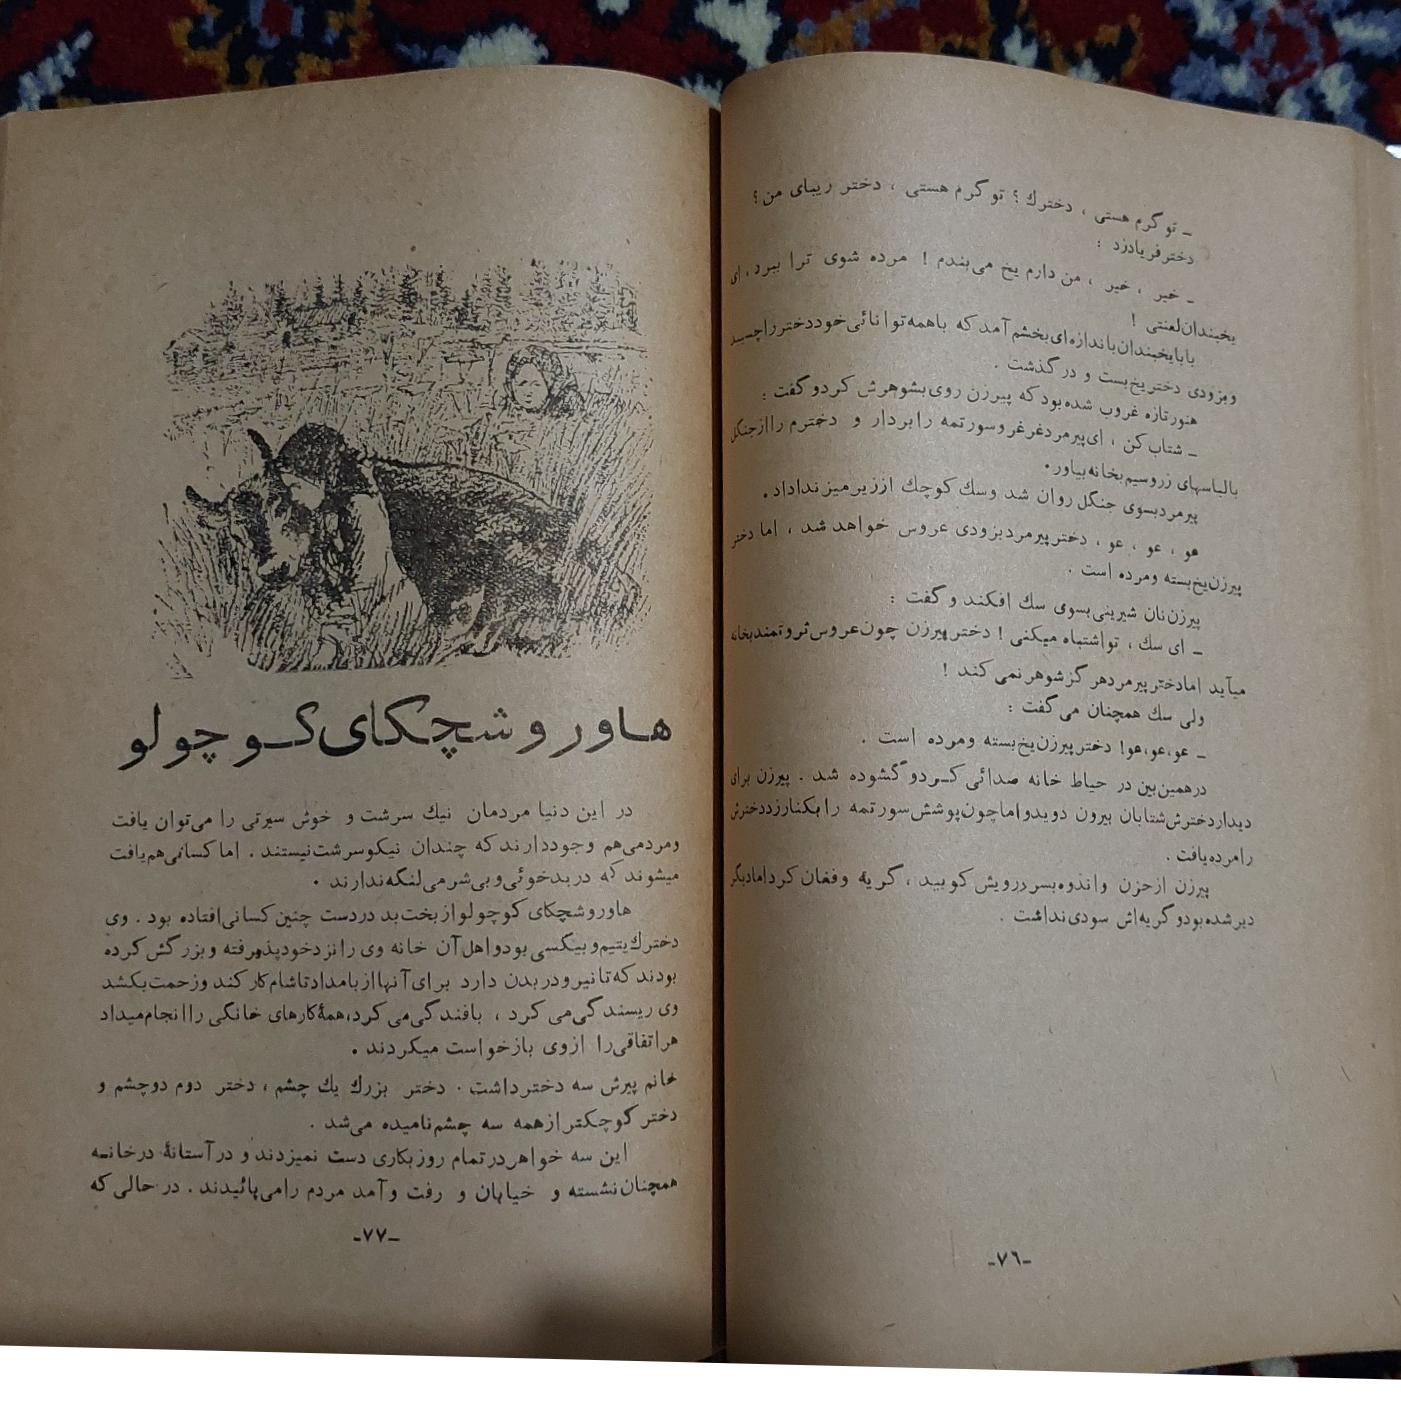 ـ تو گرم هستی ، دخترك ؟ تو گرم هستی ، دختر زیبای من ؟
دختر فریادزد :
ـ خیر ، خیر ، من دارم یخ می‌بندم ! مرده شوی ترا ببرد ، ای
یخبندان لعنتی !
بابا یخبندان باندازه‌ای بخشم آمد که باهمه توانائی خود دختر را چسبید
وبزودی دختر یخ بست و در گذشت .
هنوز تازه غروب شده بود که پیرزن روی بشوهرش کردو گفت :
ـ شتاب کن ، ای پیرمرد غرغرو سورتمه را بردار و دخترم را از جنگل
بالباسهای زروسیم بخانه بیاور .
پیرمرد بسوی جنگل روان شد وسك کوچك از زیر میز ندا داد .
عو ، عو ، عو ، دختر پیرمرد بزودی عروس خواهد شد ، اما دختر
پیرزن یخ بسته ومرده است .
پیرزن نان شیرینی بسوی سك افکند و گفت :
ـ ای سك ، تو اشتباه میکنی ! دختر پیرزن چون عروس ثروتمند بخانه
میآید اما دختر پیرمرد هرگز شوهر نمی کند !
ولی سك همچنان می گفت :
ـ عو،عو،عو! دختر پیرزن یخ بسته ومرده است .
درهمین بین در حیاط خانه صدائی کردو گشوده شد . پیرزن برای
دیدار دخترش شتابان بیرون دوید و اما چون پوشش سورتمه را بکنار زد دخترش
را مرده یافت .
پیرزن از حزن واندوه بسر و رویش کوبید ، گریه وفغان کرد اما دیگر
دیر شده بود و گریه‌اش سودی نداشت .
ـ۷٦ـ
هاوروشچکای کوچولو
در این دنیا مردمان نیك سرشت و خوش سیرتی را می‌توان یافت
ومردمی هم وجود دارند که چندان نیکو سرشت نیستند . اما کسانی هم یافت
میشوند که در بدخوئی و بی‌شرمی لنگه ندارند .
هاوروشچکای کوچولو از بخت بد دردست چنین کسانی افتاده بود . وی
دخترك یتیم و بیکسی بود و اهل آن خانه وی را نزد خود پذیرفته و بزرگش کرده
بودند که تا نیرو در بدن دارد برای آنها از بامداد تا شام کار کند و زحمت بکشد
وی ریسندگی می کرد ، بافندگی می کرد، همهٔ کارهای خانگی را انجام میداد
هر اتفاقی را از وی بازخواست میکردند .
خانم پیرش سه دختر داشت . دختر بزرك یك چشم ، دختر دوم دوچشم و
دختر کوچکتر از همه سه چشم نامیده می‌شد .
این سه خواهر در تمام روز بکاری دست نمیزدند و در آستانهٔ در خانه
همچنان نشسته و خیابان و رفت و آمد مردم را می‌پائیدند . در حالی که
ـ۷۷ـ